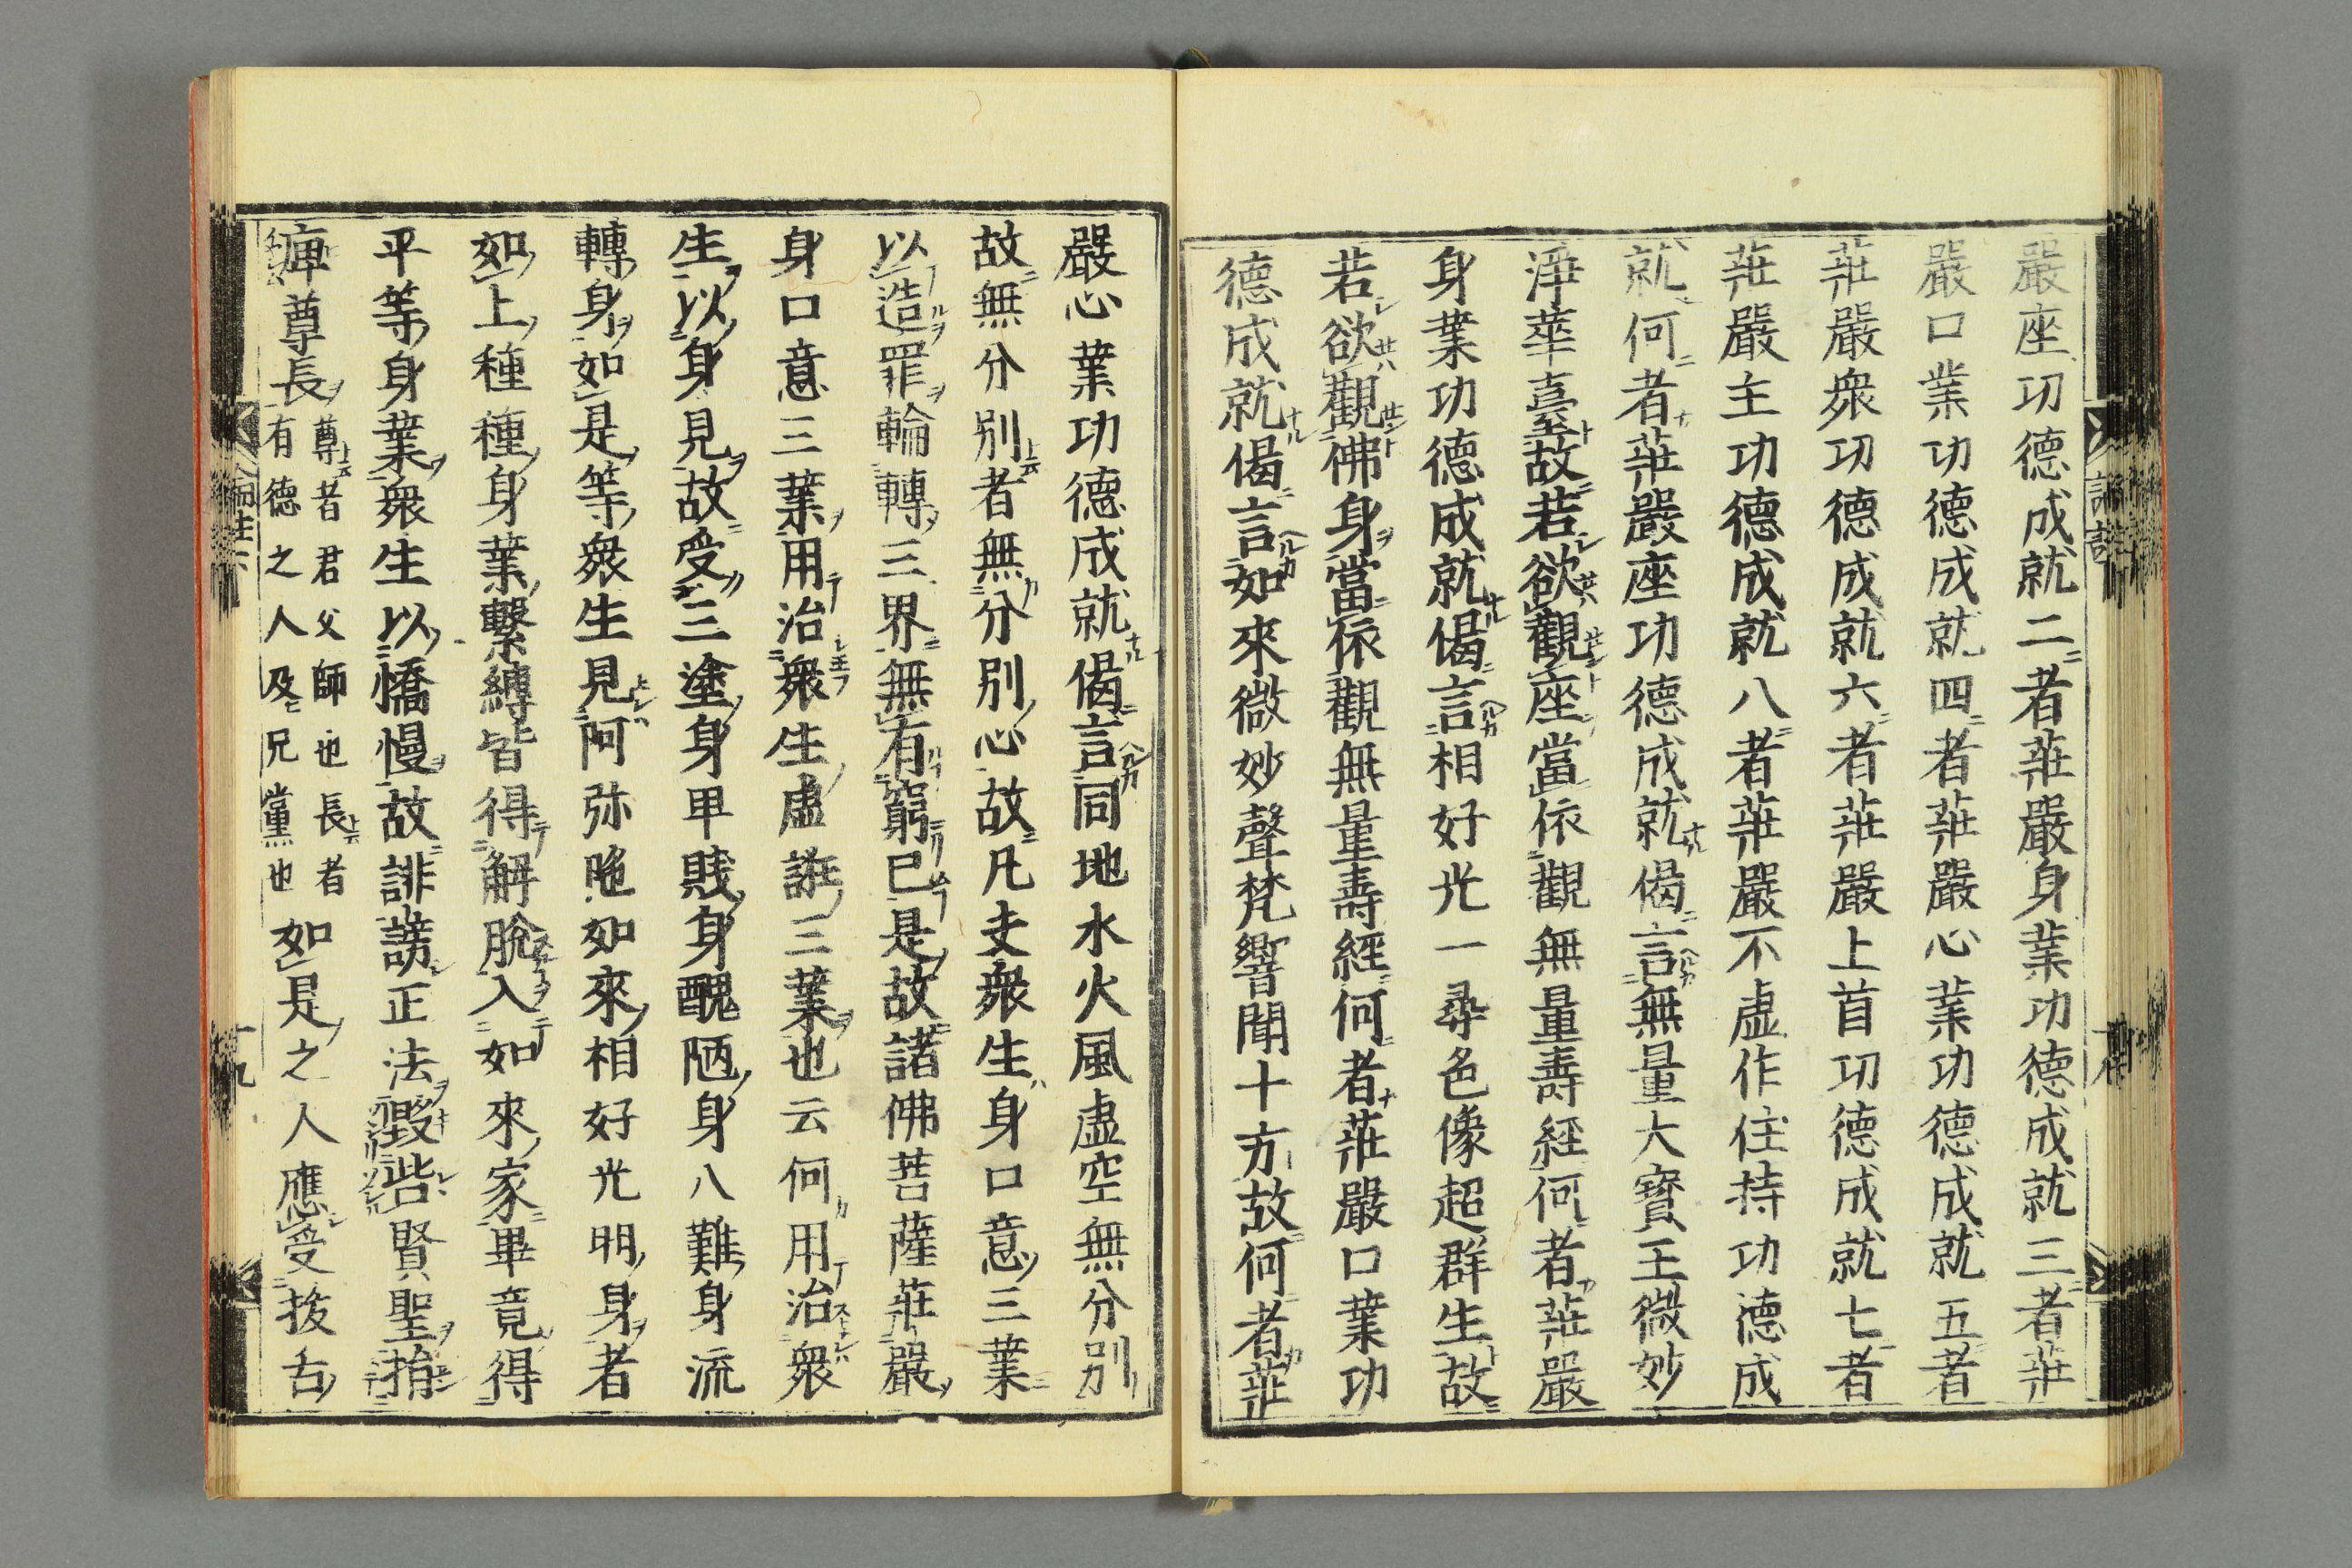 嚴座功德成就二者莊嚴身業功德成就三者莊
嚴口業功德成就四者莊嚴心業功德成就五者
莊嚴衆功德成就六者莊嚴上首功德成就七者
莊嚴主功德成就八者莊嚴不虛作住持功德成
就何者莊嚴座功德成就偈言無量大寶王微妙
淨華臺故若欲觀座當依觀無量壽經何者莊嚴
身業功德成就偈言相好光一尋色像超群生故
若欲觀佛身當依觀無量壽經何者莊嚴口業功
德成就偈言如來微妙聲梵響聞十方故何者莊
嚴心業功德成就偈言同地水火風虛空無分別
故無分別者無分別心故凡夫衆生身口意三業
以造罪輪轉三界無有窮已是故諸佛菩薩莊嚴
身口意三業用治衆生虛誑三業也云何用治衆
生以身見故受三塗身卑賤身醜陋身八難身流
轉身如是等衆生見阿弥陁如來相好光明身者
如上種種身業繫縛皆得解脫入如來家畢竟得
平等身業衆生以憍慢故誹謗正法毀呰賢聖捐
庳尊長
尊者君父師也長者
有德之人及兄黨也
如是之人應受拔舌